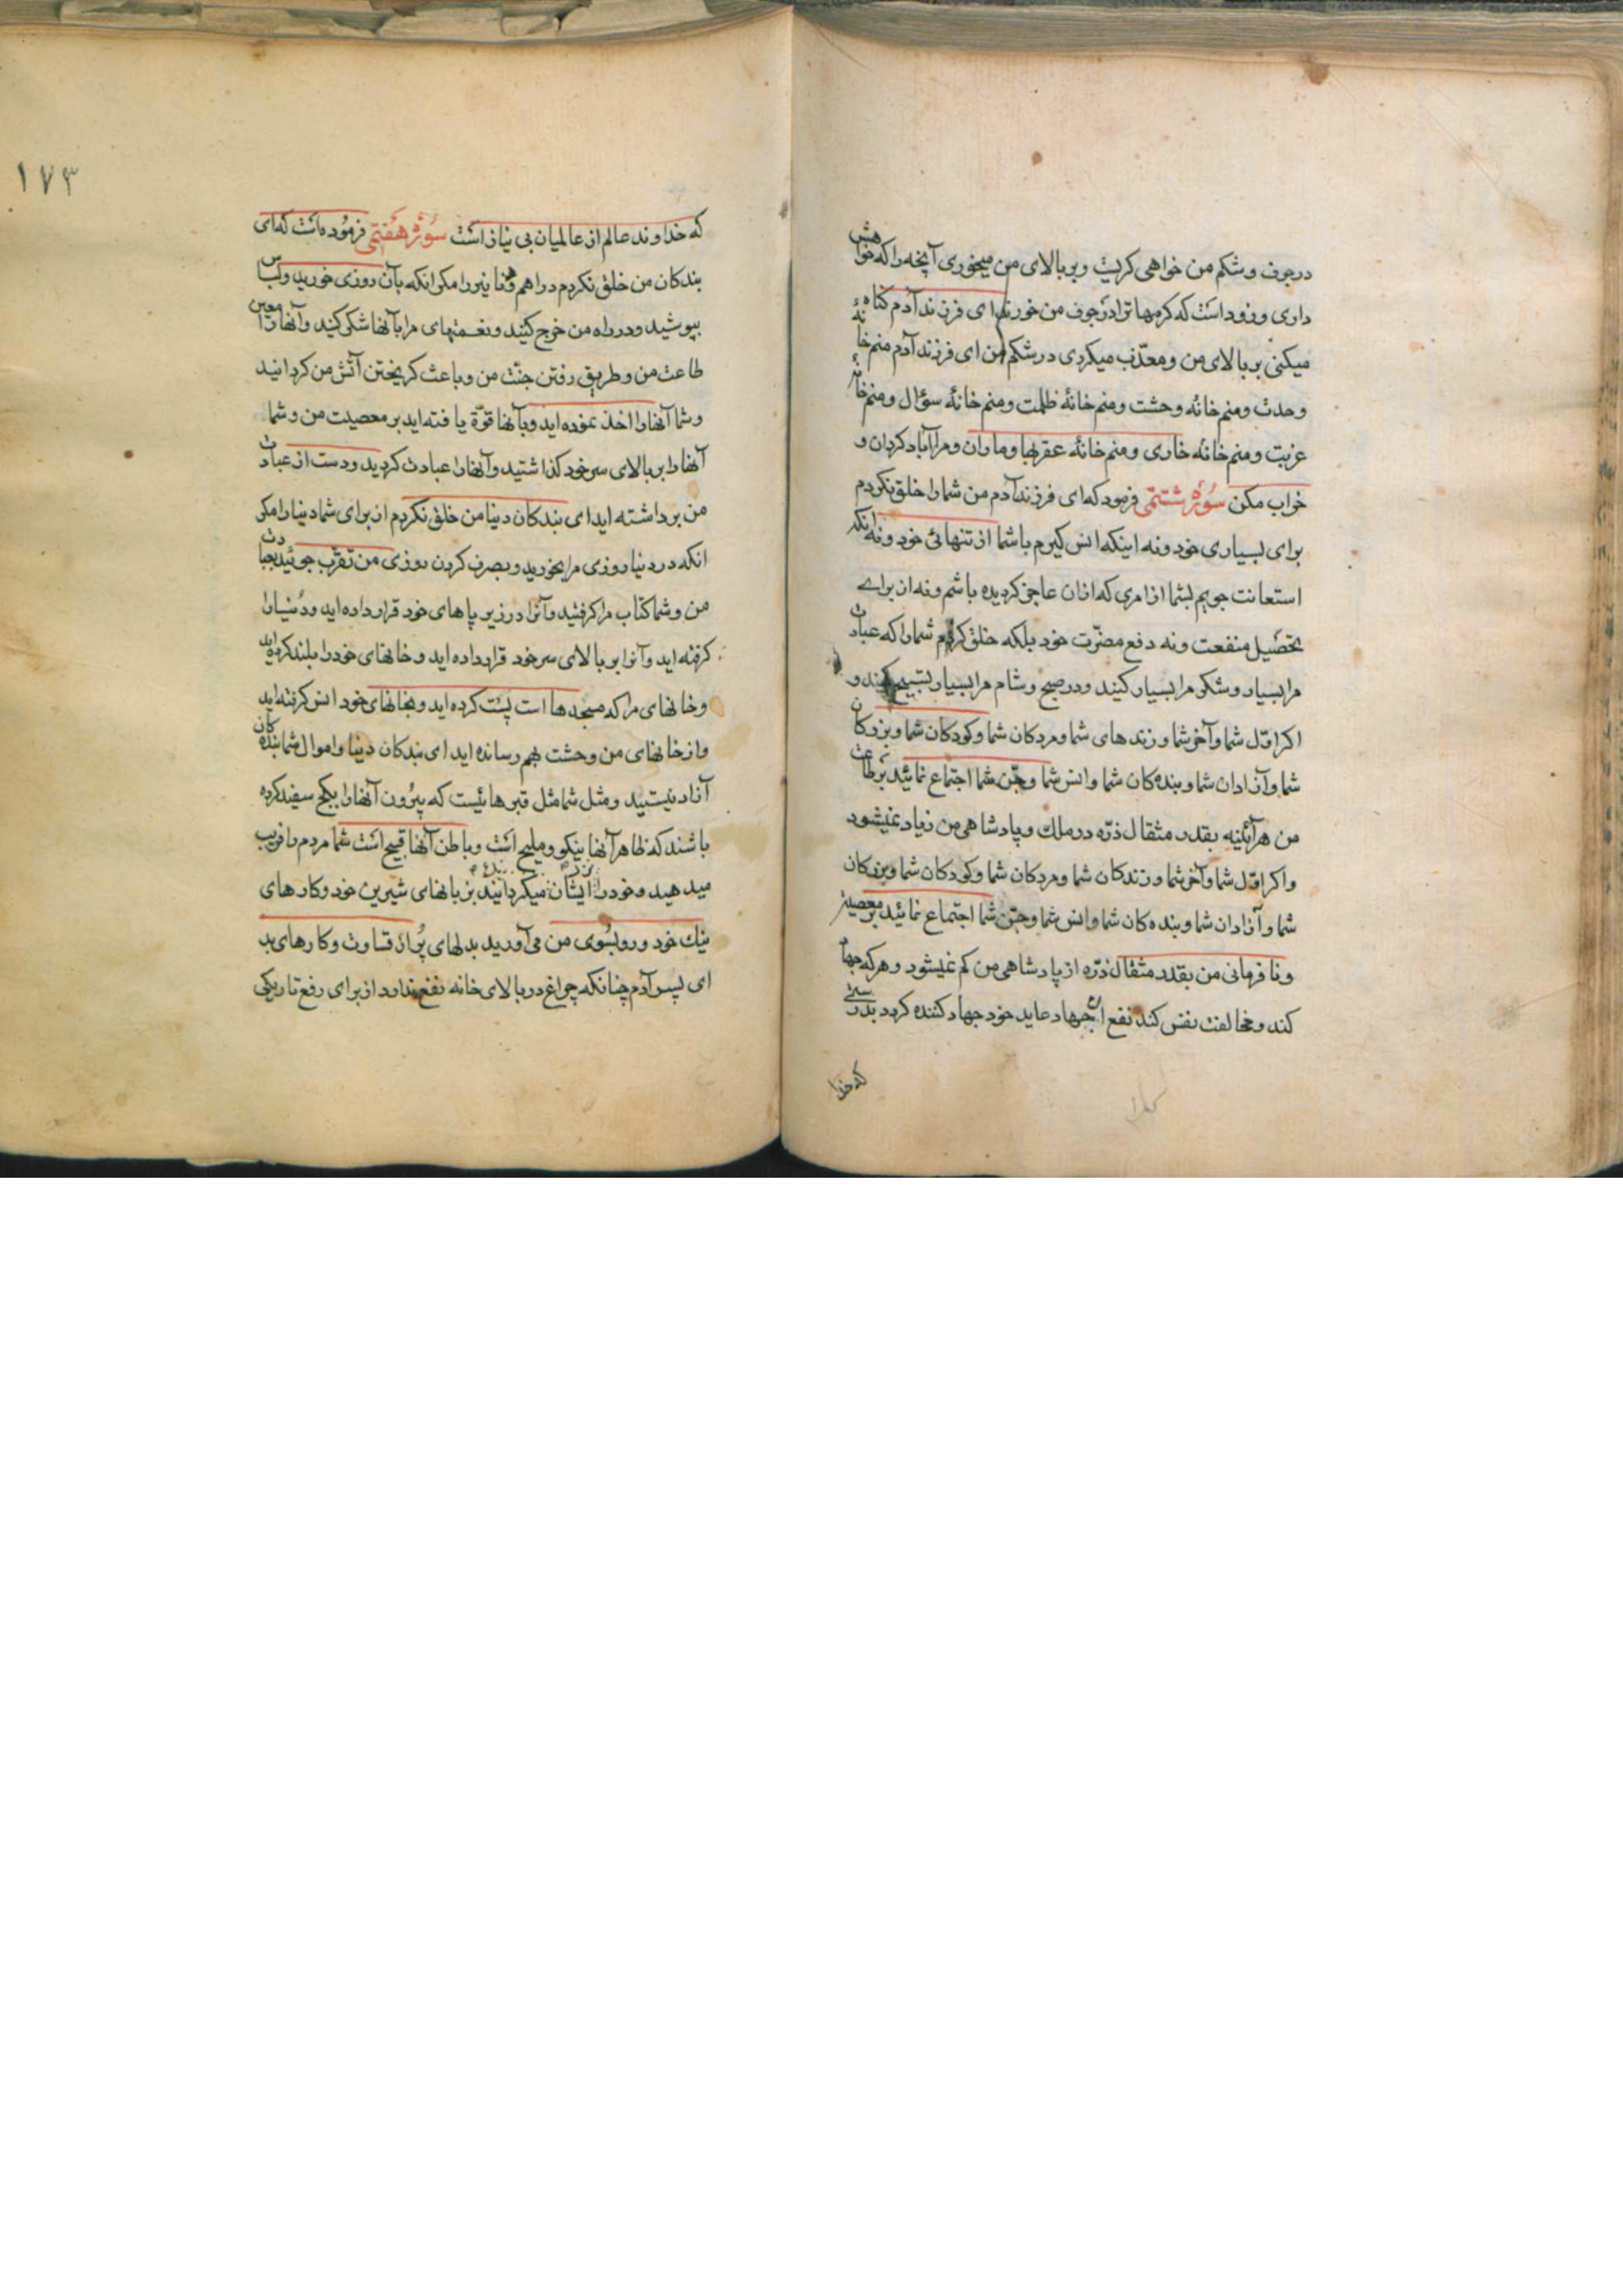 در جوف و شکم من خواهی کریست و بر بالای من میخوری آنچه را که خواهش
داری و زود است که کرمها ترا در جوف من خورند ای فرزند آدم کناه
میکنی بر بالای من و معذّب میکردی در شکم من ای فرزند آدم منم خانهٔ
وحدت و منم خانهٔ وحشت و منم خانهٔ ظلمت و منم خانهٔ سؤال و منم خانهٔ
غربت و منم خانهٔ خاری و منم خانهٔ عقربها و ماران و مرا آباد کردان و
خراب مکن سُورهٔ ششتمی فرمود که ای فرزند آدم من شما را خلق نکردم
برای بسیاری خود و نه اینکه انس کیرم با شما از تنهائی خود و نه انکه
استعانت جویم بشما از امری که از ان عاجز کردیده باشم و نه از برای
تحصیل منفعت و نه دفع مضرّت خود بلکه خلق کردم شما را که عبادت
مرا بسیار و شکر مرا بسیار کنید و در صبح و شام مرا بسیار تسبیح کنید و
اکر اوّل شما و آخر شما و زندهای شما و مردکان شما و کودکان شما و بزرکان
شما و آزادان شما و بنده کان شما و انس شما و جّن شما اجتماع نمائید بر طاعت
من هر آئینه بقدر مثقال ذرّه در ملک و پادشاهی من زیاد نمیشود
و اکر اوّل شما و آخر شما و زندکان شما و مردکان شما و کودکان شما و بزرکان
شما و آزادان شما و بنده کان شما و انس شما و جنّ شما اجتماع نمائید بر معصیت
و نا فرمانی من بقدر مثقال ذرّه از پادشاهی من کم نمیشود و هر که جهاد
کند و مخالفت نفس کند نفع ان جهاد عاید خود جهاد کننده کردد بدرستی
که خدا
۱۷۳
که خداوند عالم از عالمیان بی نیاز است سُورهٔ هفتمی فرموُده است که ای
بندکان من خلق نکردم دراهم و دنانیر را مکر انکه بآن روزی خورید و لباس
بپوشید و در راه من خرج کنید و نعمتهای مرا بآنها شکر کنید و آنها را معین
طاعت من و طریق رفتن جنّت من و باعث کریختن آتش من کردانید
و شما آنها را اخذ نموده اید و بآنها قوّة یافته اید بر معصیت من و شما
آنها را بر بالای سر خود کذاشتید و آنها را عبادت کردید و دست از عبادت
من برداشته اید ای بندکان دنیا من خلق نکردم از برای شما دنیا را مکر
انکه در دنیا روزی مرا بخورید و بصرف کردن روزی من تقرّب جوئید بجناب
من و شما کتاب مرا کرفتید و آنرا در زیر پاهای خود قرار داده اید و دُنیا را
کرفته اید و آنرا بر بالای سر خود قرار داده اید و خانهای خود را بلند کرده اید
و خانهای مرا که مسجدها است پست کرده اید و بخانهای خود انس کرفته اید
و از خانهای من وحشت بهم رسانده اید ای بندکان دنیا و اموال شما بنده کان
آزاد نیستید و مثل شما مثل قبرهائیست که بیرُون آنها را بکچ سفید کرده
باشند که ظاهر آنها نیکو و ملیح است و باطن آنها قبیح است شما مردم را فریب
میدهید و خود را ایشان میکردانید بزبانهای شیرین خود و کارهای
نیک خود و رو بسُوی من می آورید بدلهای پُر از قساوت و کارهای بد
ای پسر آدم چنانکه چراغ در بالای خانه نفع ندارد از برای رفع تاریکی